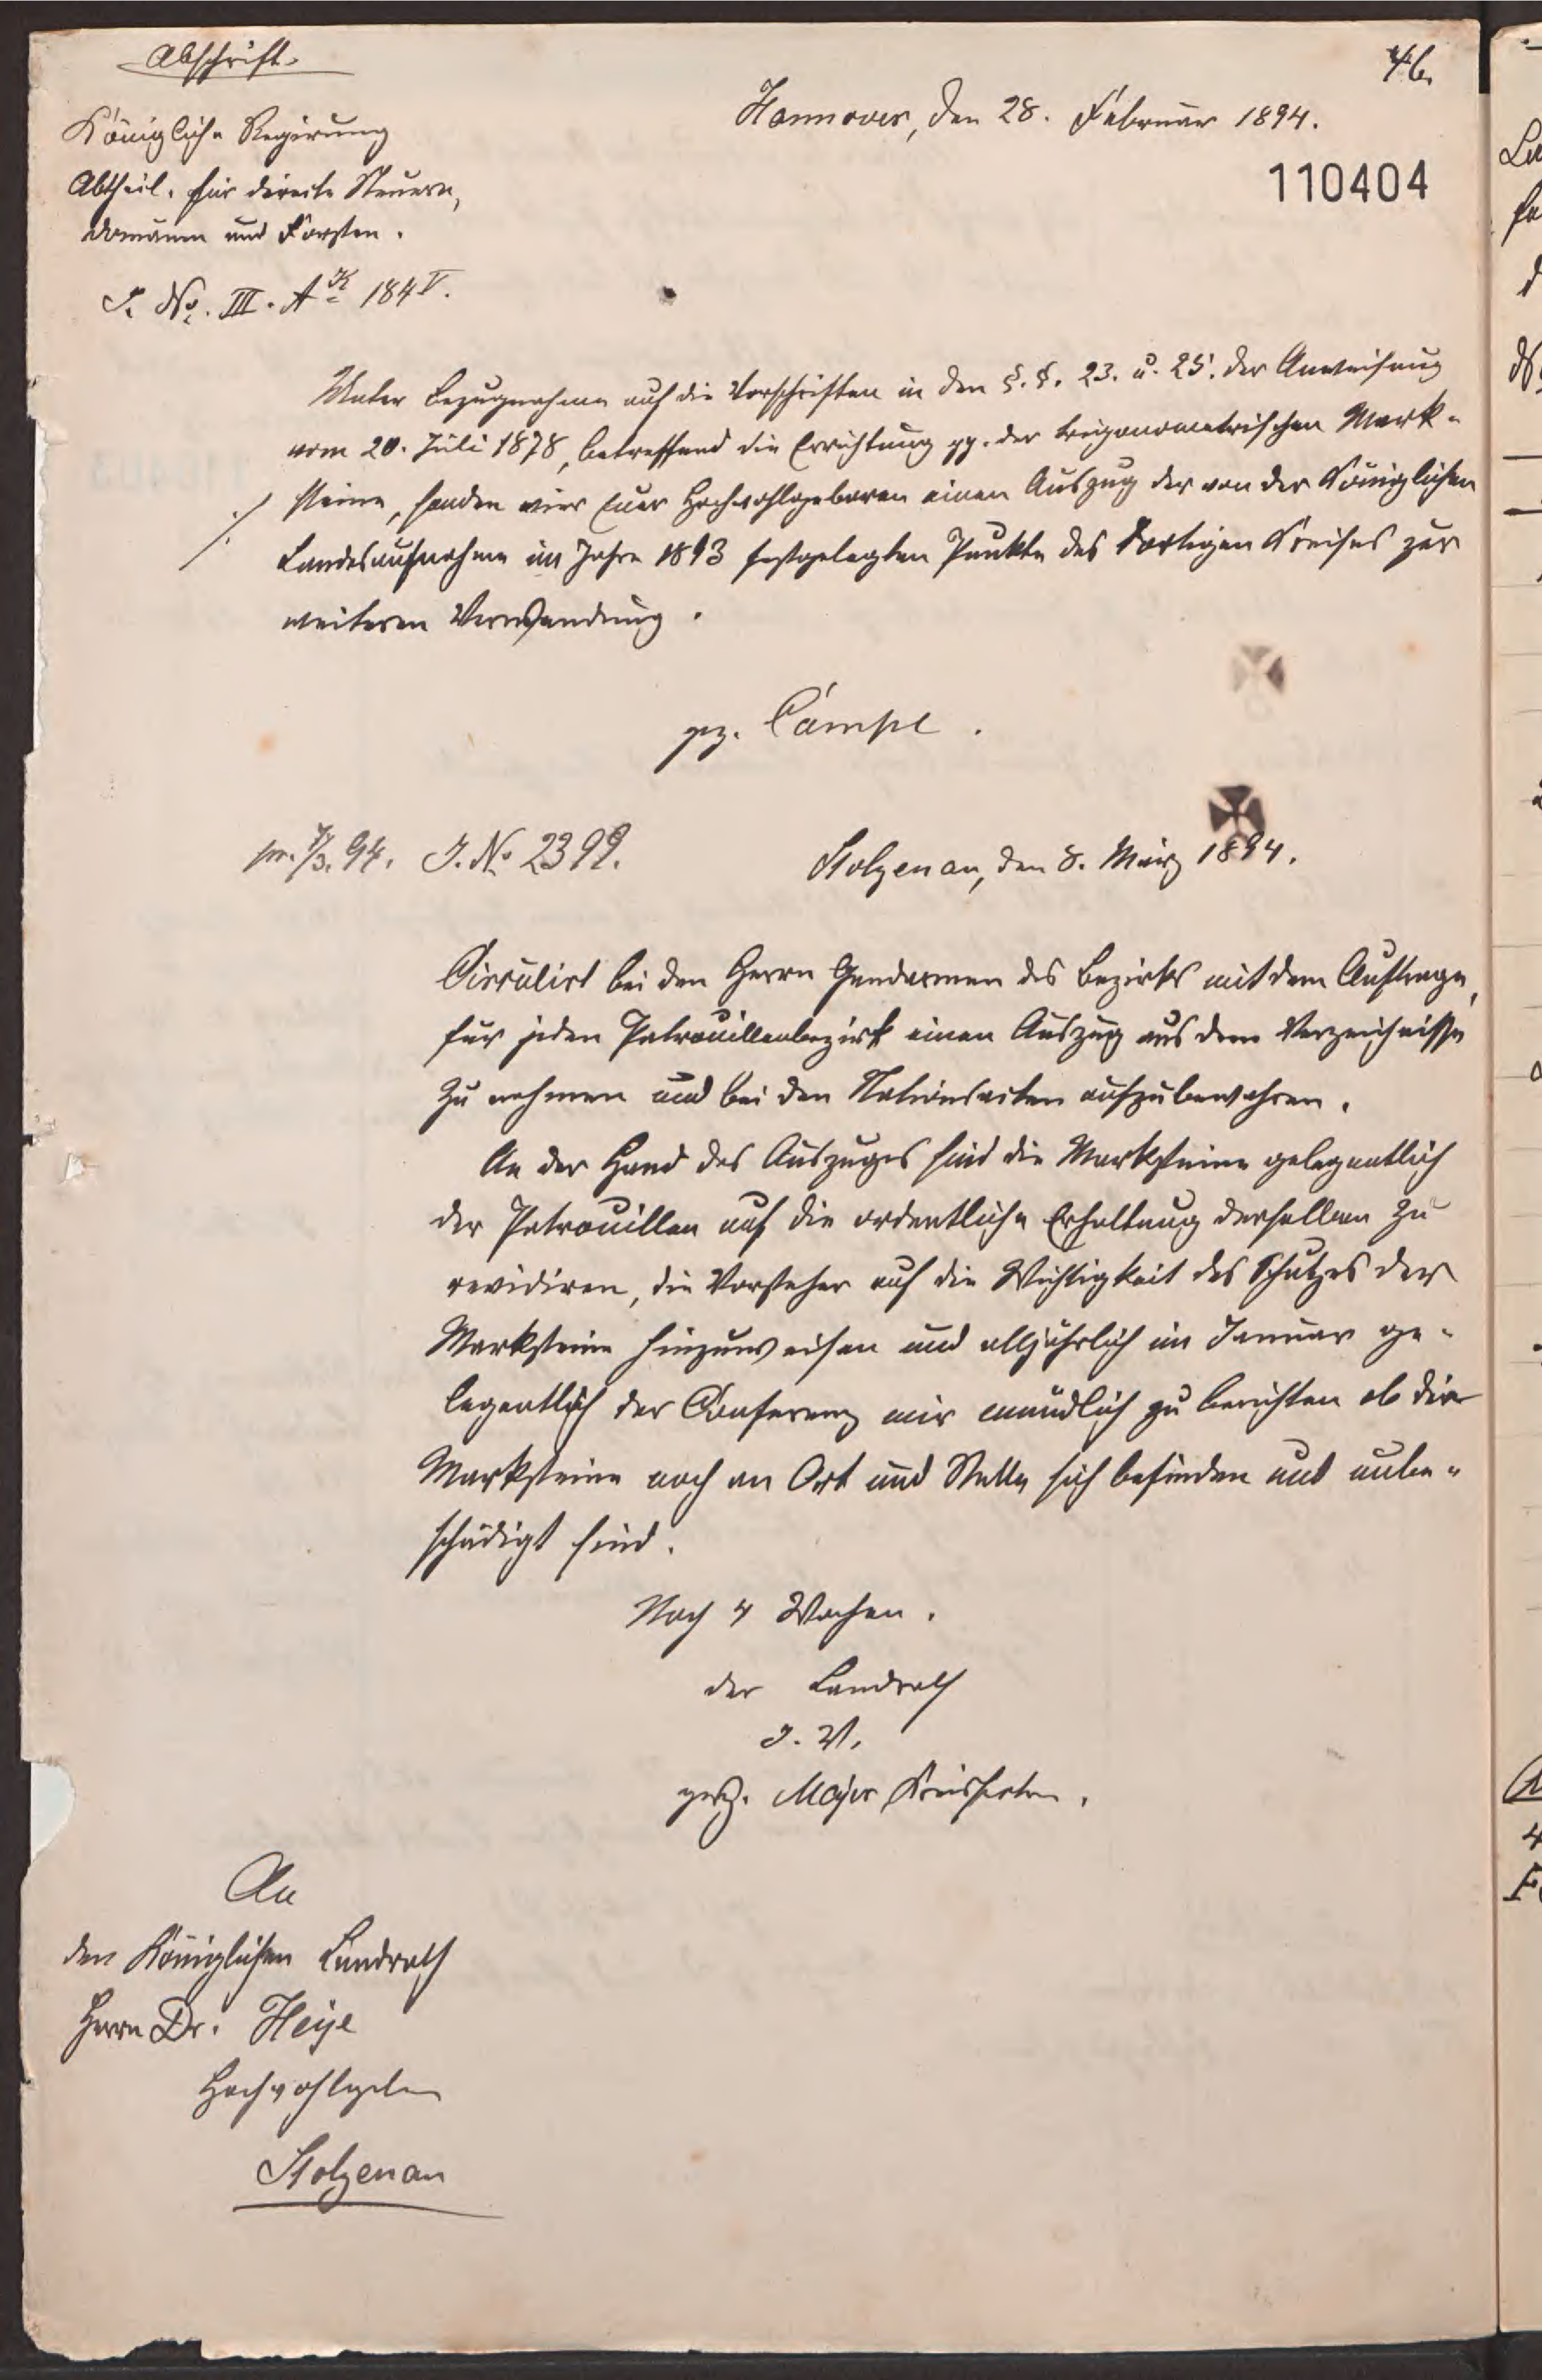 Abschrift.
46.
Hannover, den 28. Februar 1894.
110404
Königliche Regirung
Abtheil. für directe Steuern,
Domänen und Forsten.
J. No. III. A K 184 V.
Unter Bezugnahme auf die Vorschriften in den §. §. 23. u. 25. der Anweisung
vom 20. Juli 1878, betreffend die Errichtung pp. der trigonometrischen Mark-
steine, senden wir Euer Hochwohlgeboren einen Auszug der von der Königlichen
Landesaufnahme im Jahre 1893 festgelegten Punkte des dortigen Kreises zur
weiteren Verwendung.
gez. Campe.
pr. 7/3. 94. J. No 2399.
Stolzenau, den 8. März 1894.
Circulirt bei den Herrn Gendarmen des Bezirks mit dem Auftrage,
für jeden Patrouillenbezirk einen Auszug aus dem Verzeichnisse
zu nehmen und bei den Stationsakten aufzubewahren.
An der Hand des Auszuges sind die Marksteine gelegentlich
der Patrouillen auf die ordentliche Erhaltung derselben zu
revidiren, die Vorsteher auf die Wichtigkeit des Schutzes der
Marksteine hinzuweisen und alljährlich im Januar ge-
legentlich der Conferenz mir mündlich zu berichten ob die
Marksteine noch an Ort und Stelle sich befinden und unbe-
schädigt sind.
Nach 4 Wochen.
der Landrath
I. V.
gez. Meyer
An
den Königlichen Landrath
Herrn Dr. Heye
Hochwohlgeboren
Stolzenau